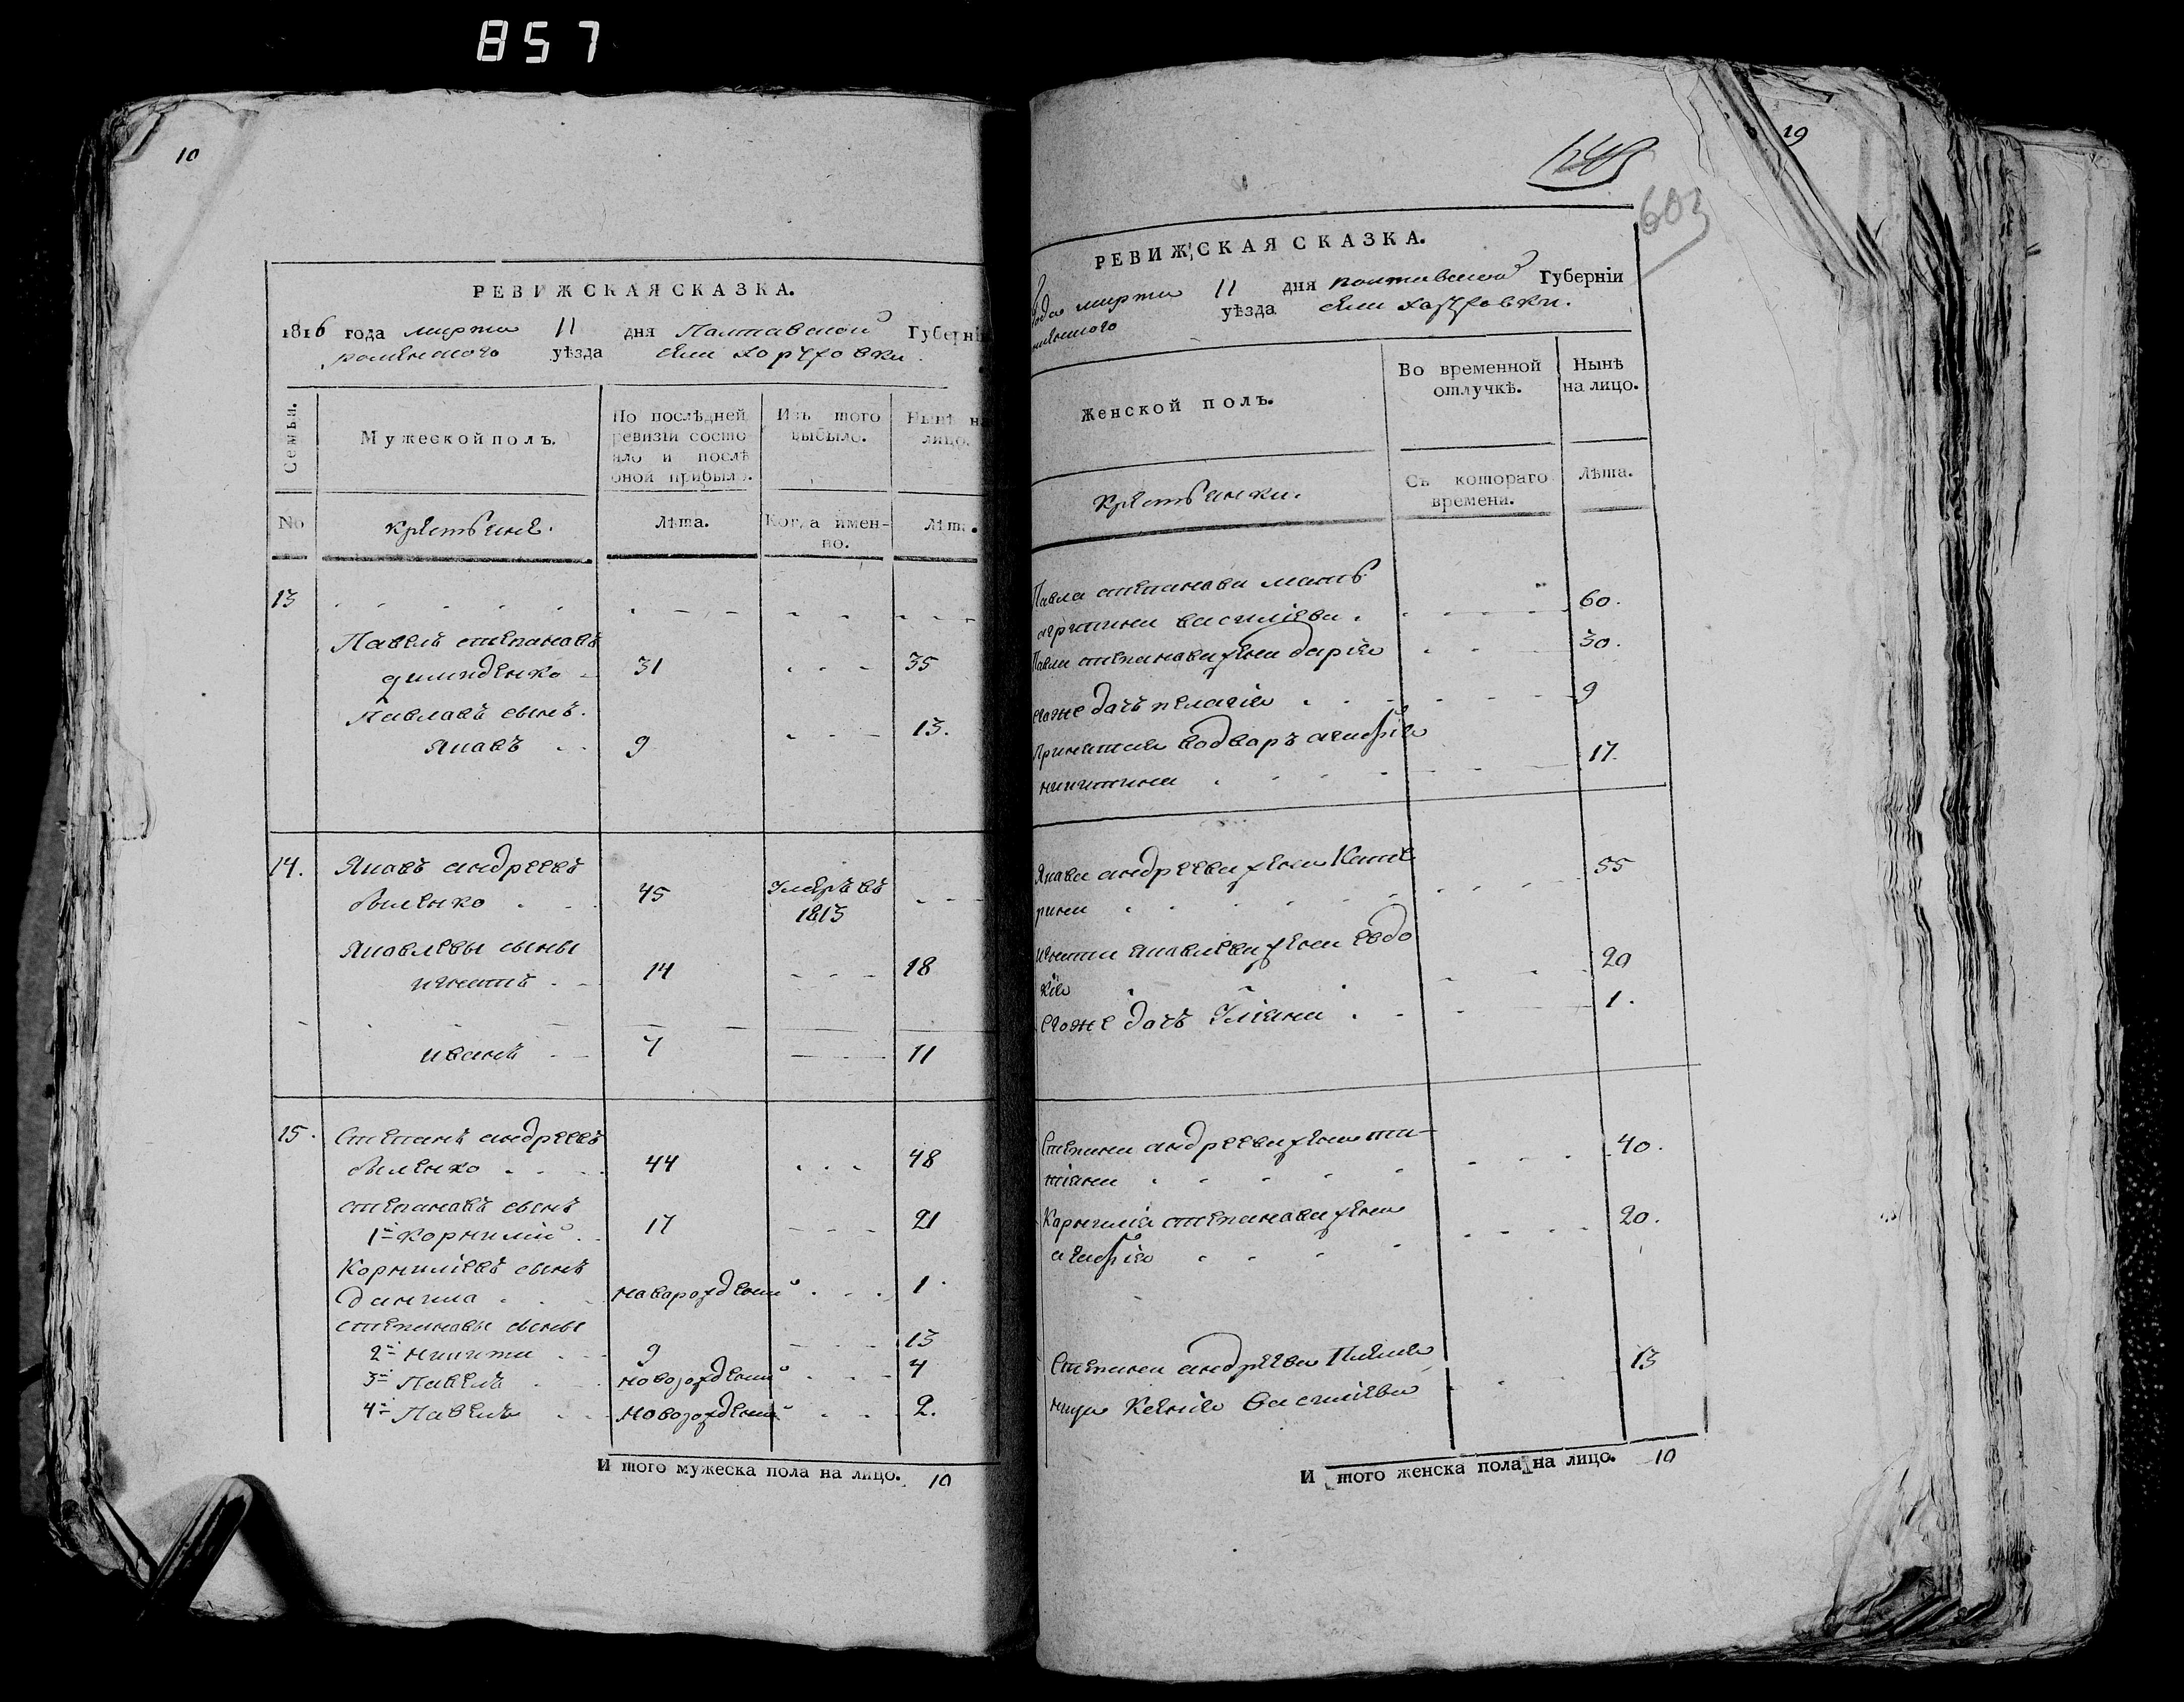 857
10
РЕВИЖСКАЯ СКАЗКА.
1816 года марта 11 дня Полтавской Губерніи
роменского уѣзда села
Семьи.
Мужеской полъ.
По послѣдней ревизіи состояло и послѣ оной прибыло.
Изъ того выбыло.
Нынѣ на лицо.
No
крестьяне.
Лѣта.
Когда именно.
Лѣта.
13
Павелъ степановъ
31
35
Павловъ сынъ.
яковъ
9
13.
14.
Яковъ андреевъ
45
Умеръ въ
1813
Яковлевы сыны
игнатъ
14
18
иванъ
7
11
15.
Степанъ андреевъ
44
48
степановъ сынъ
1й Корнилий
17
21
Корниліевъ сынъ
данила
новорожденый
1
степановы сыны
2й Никита
9
13
3й Павелъ
новорожденый
4
4й Павелъ
новорожденый
2.
И того мужеска пола на лицо. 10
19
603
РЕВИЖСКАЯ СКАЗКА.
года марта 11 дня полтавской Губерніи
уѣзда села
Женской полъ.
Во временной отлучкѣ.
Нынѣ на лицо.
Крестьянки.
Съ котораго времени.
Лѣта.
Павла степанова мать
василіева
60.
Павла степанова жена дарія
30.
егоже дочъ пелагія
9
агафія
никитина
17.
Якова андреева жена Кате
рина
55
игната яковлева жена евдо
кія
20
егоже дочъ Уліана
1.
Степана андреева жена та-
тіана
40.
Корнилія степанова жена
агафія
20.
Степана андреева племя
ница Ксенія Василіева
13
И того женска пола на лицо. 10